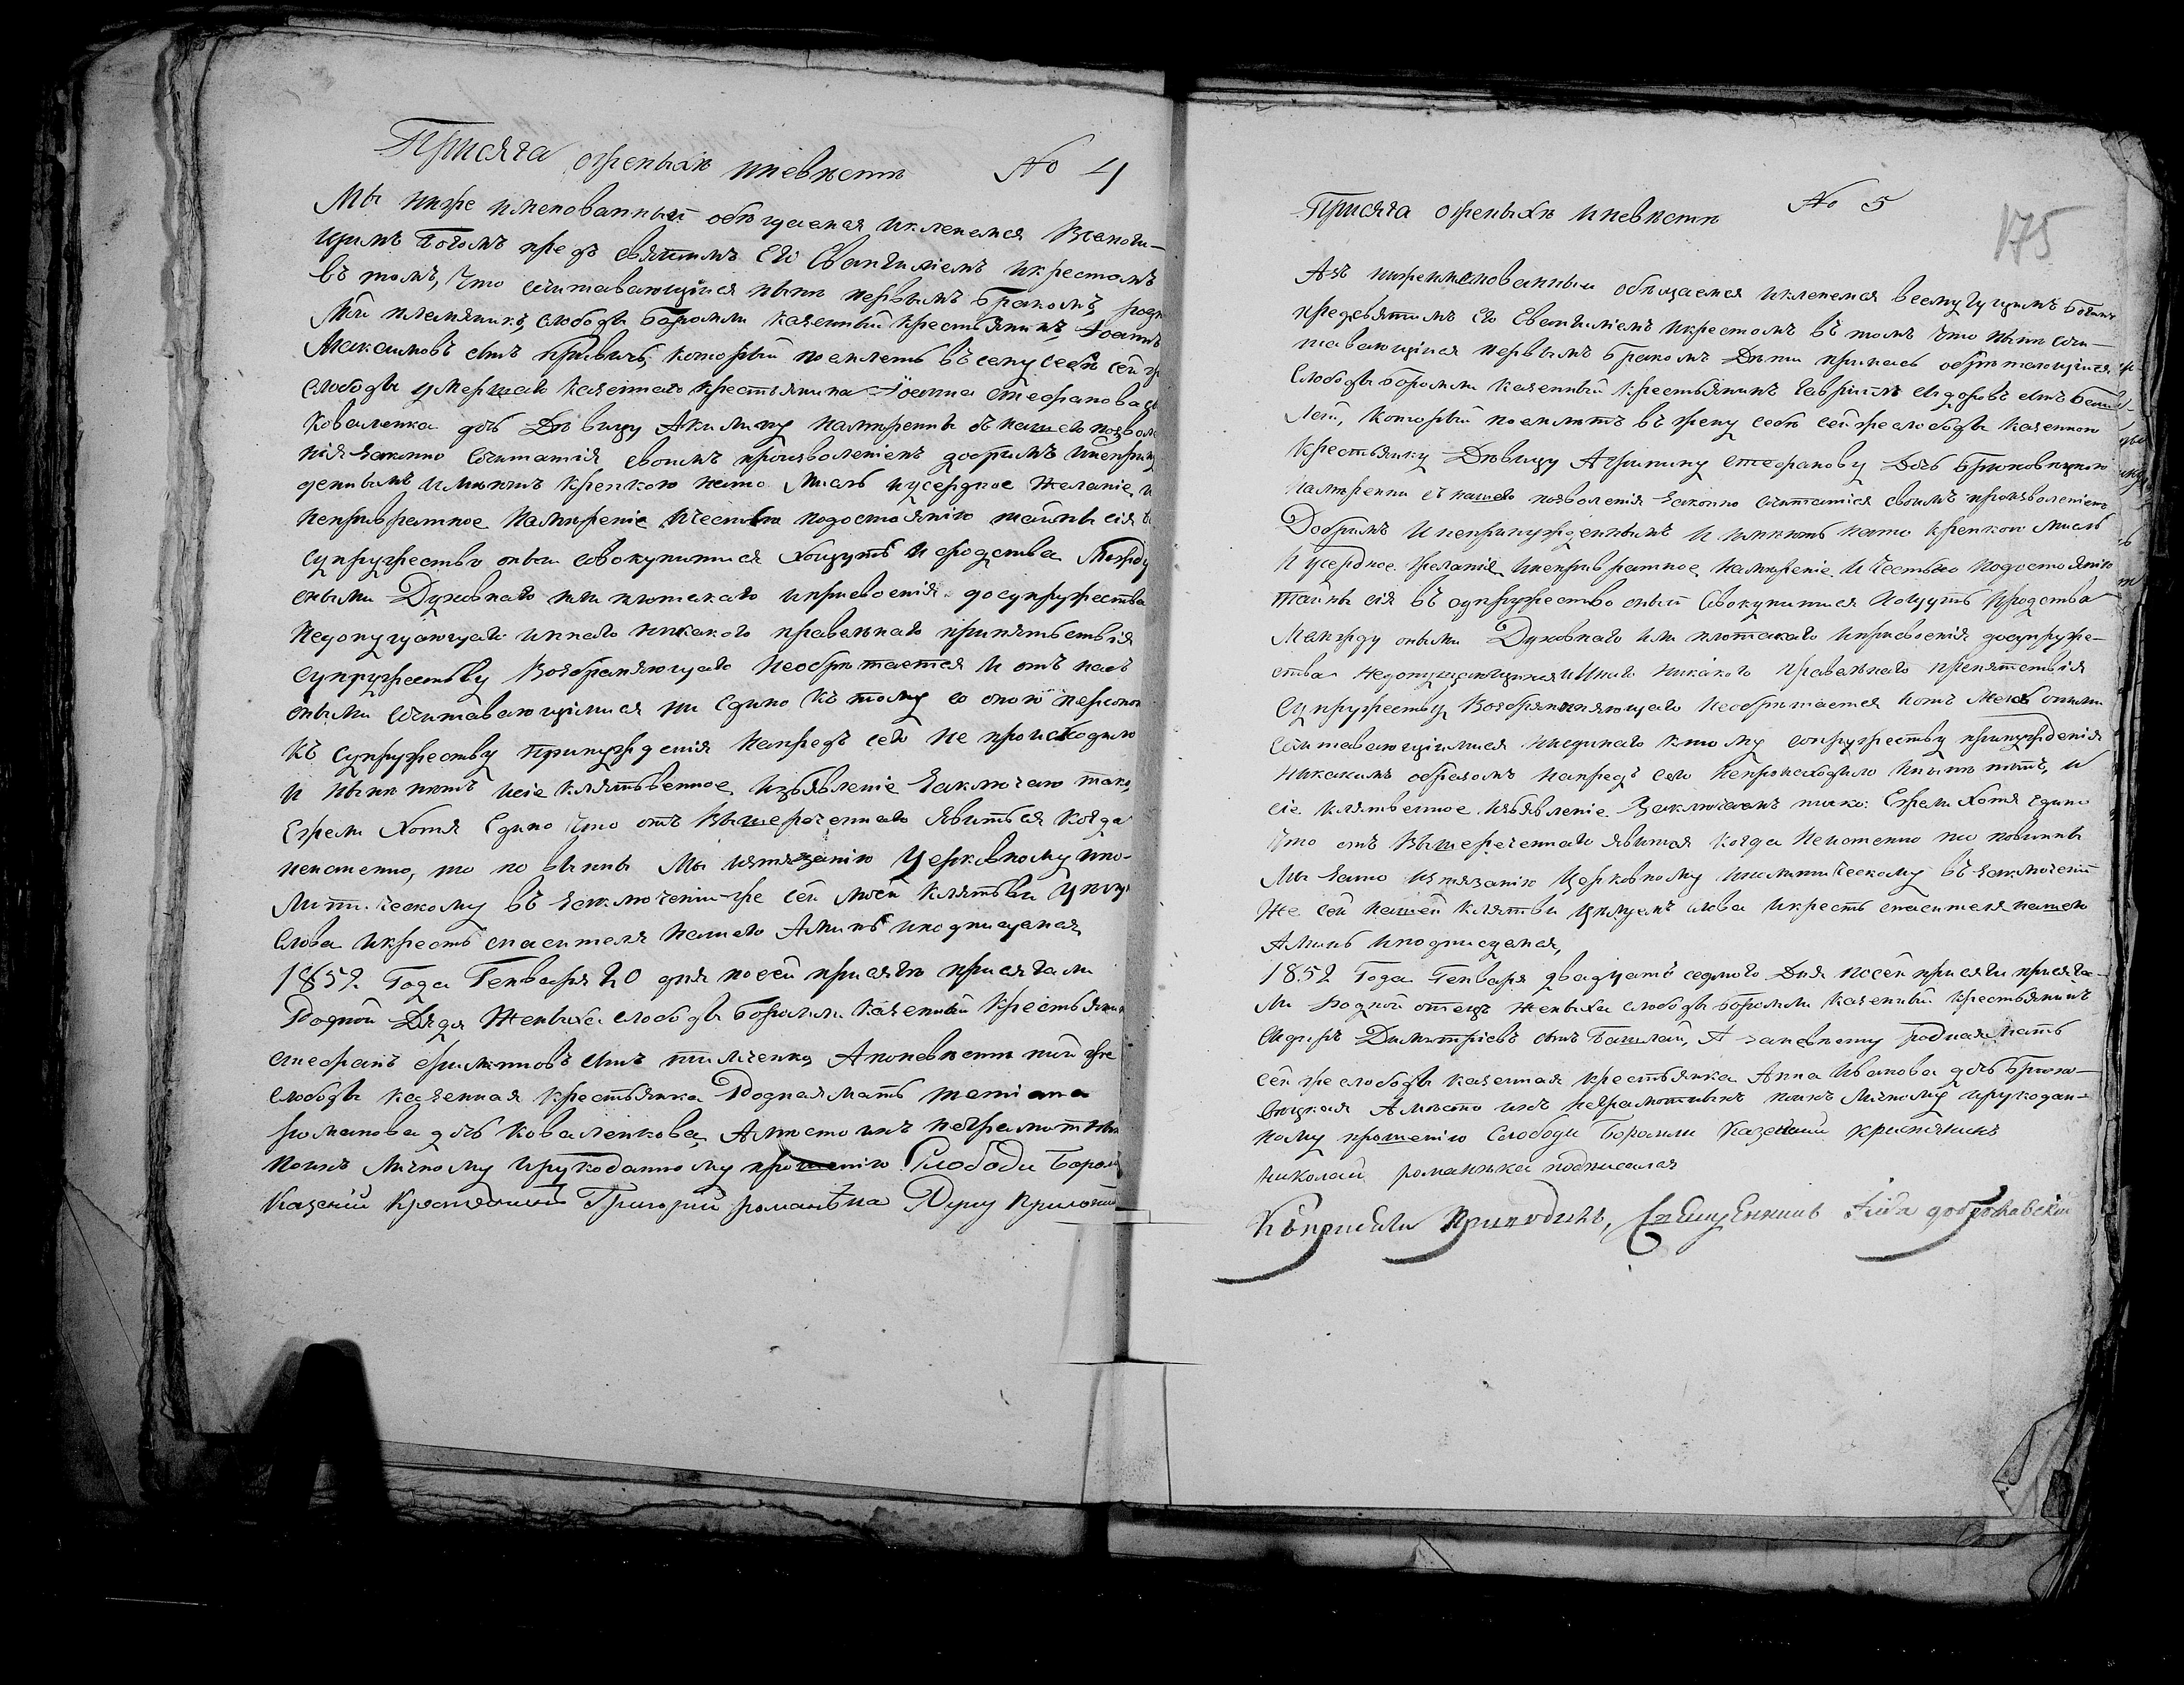 Присяга оженихѣ иневѣстѣ № 4
Мы ниже именованный обѣщаемся икленемся Всемогу-
щимъ Богомъ предъ святымъ Его Евангилiемъ икрестомъ
въ томъ, что сочитавающiйся нынѣ первымъ бракомъ,
мой племяникъ, слободы Боромли казенный крестьянинъ, Iоаннъ
Максимовъ сынъ который поемлетъ въ жену себѣ сей
слободы умершаго казеннаго крестьянина Iоанна Стефанова
Коваленка дочь Дѣвицу Акилину намѣренны съ нашего
нiя законно сочитатися своимъ произволенiемъ добримъ
деннымъ имѣютъ крепкою нато мысль иусердное желанiе
непревратное намѣренiе ичестью подостоянiю тайны сiя
супружество оные совокупитися хощутъ и сродства Между
оными Духовнаго или плотскаго иприсвоенiя досупружества
недопущающаго иннаго никакого правелнаго припятствiя
супружеству Возбраняющаго необрѣтается и отъ насъ
оными сочитавающiмися ни едино къ тому со оною персоною
къ супружеству принужденiя напредъ сего не происходило
и нынѣ нѣтъ исiе клятвенное избявленiе заключаю тако,
Ежели Хотя Едино что отъ вышереченнаго явиться когда
неистенно, то повинны Мы изтязанiю Церковному ипо-
литическому въ заключенiи-же сей моей клятвы
слова икрестъ спасителя нашего Аминь иподписуемся,
1852 Года Генваря 20 дня посей присягѣ присягали
Родной Дядя Жениха слободы Боромли Казенный Крестьянинъ
Стефанъ сынъ Апоневѣстѣ той же
слободы казенная крестьянка Родная мать татiана
романова дочь коваленкова, Авместо ихъ неграмотныхъ
поихъ личному ирукоданному прошенiю Слободи
Казеній Крестянинъ Григорій романѣка Руку Приложилъ
Присяга оженихѣ иневѣстѣ № 5
175
Азъ нижеименованныи обѣщаемся икленемся всемугущимъ Богомъ
предсвятымъ Его Евангилiемъ икрестомъ въ томъ что нынѣ сочи-
тавающiися первымъ бракомъ Дѣти прихода обрѣтающiися
слободы Боромли казенный крестьянинъ Гаврiилъ Сидоровъ сынъ
лей, который поемлетъ въ жену себѣ сей же слободы казенною
крестьянку Дѣвицу Агрипину Стефанову Дочь Брюховецкою
намѣренни съ нашего позволенiя законно сочитатися своимъ произволенiемъ
Добримъ инепринужденнымъ и имѣютъ нато крепкою мысль
и усердное желанiя инепревратное намѣренiе и честью подостоянiю
тайны сiя въ супружество оный совокупитися хощутъ исродства
Между оными Духовнаго или плотскаго иприсвоенiя досупруже-
ства недопущающагося иннаго никакого правелнаго препятствiя
Супружеству необрѣтается
сочитавающiмися ниединаго ктому сопружеству принужденiя
никакимъ образомъ напредъ сего непроисходило инынѣ нѣтъ, и
сiе клятвенное избявленiе Заключаемъ тако: Ежели Хотя едино
что отъ вышереченнаго явится когда неистенно то повинны
Мы зато изтязанiю Церковному иполитическому въ заключенiи
же сей нашей клятвы цѣлуемъ слова икрестъ спасителя нашего
Аминь иподписуемся,
1852 Года Генваря двадцать седмого Дня посей присяги присяга-
ли родной отецъ жениха слободы Боромли казенный крестьянинъ
Сидоръ Димитрiевъ сынъ А заневѣсту родная мать
сей же слободы казенная крестьянка Анна Иванова дочь Брюхо-
вецкая Амѣсто ихъ неграмотныхъ поихъ личному ирукодан-
ному прошенiю Слободи Боромли Казеній крестянинъ
Николай романька подписался
Къприсяги Приводилъ, Священникъ